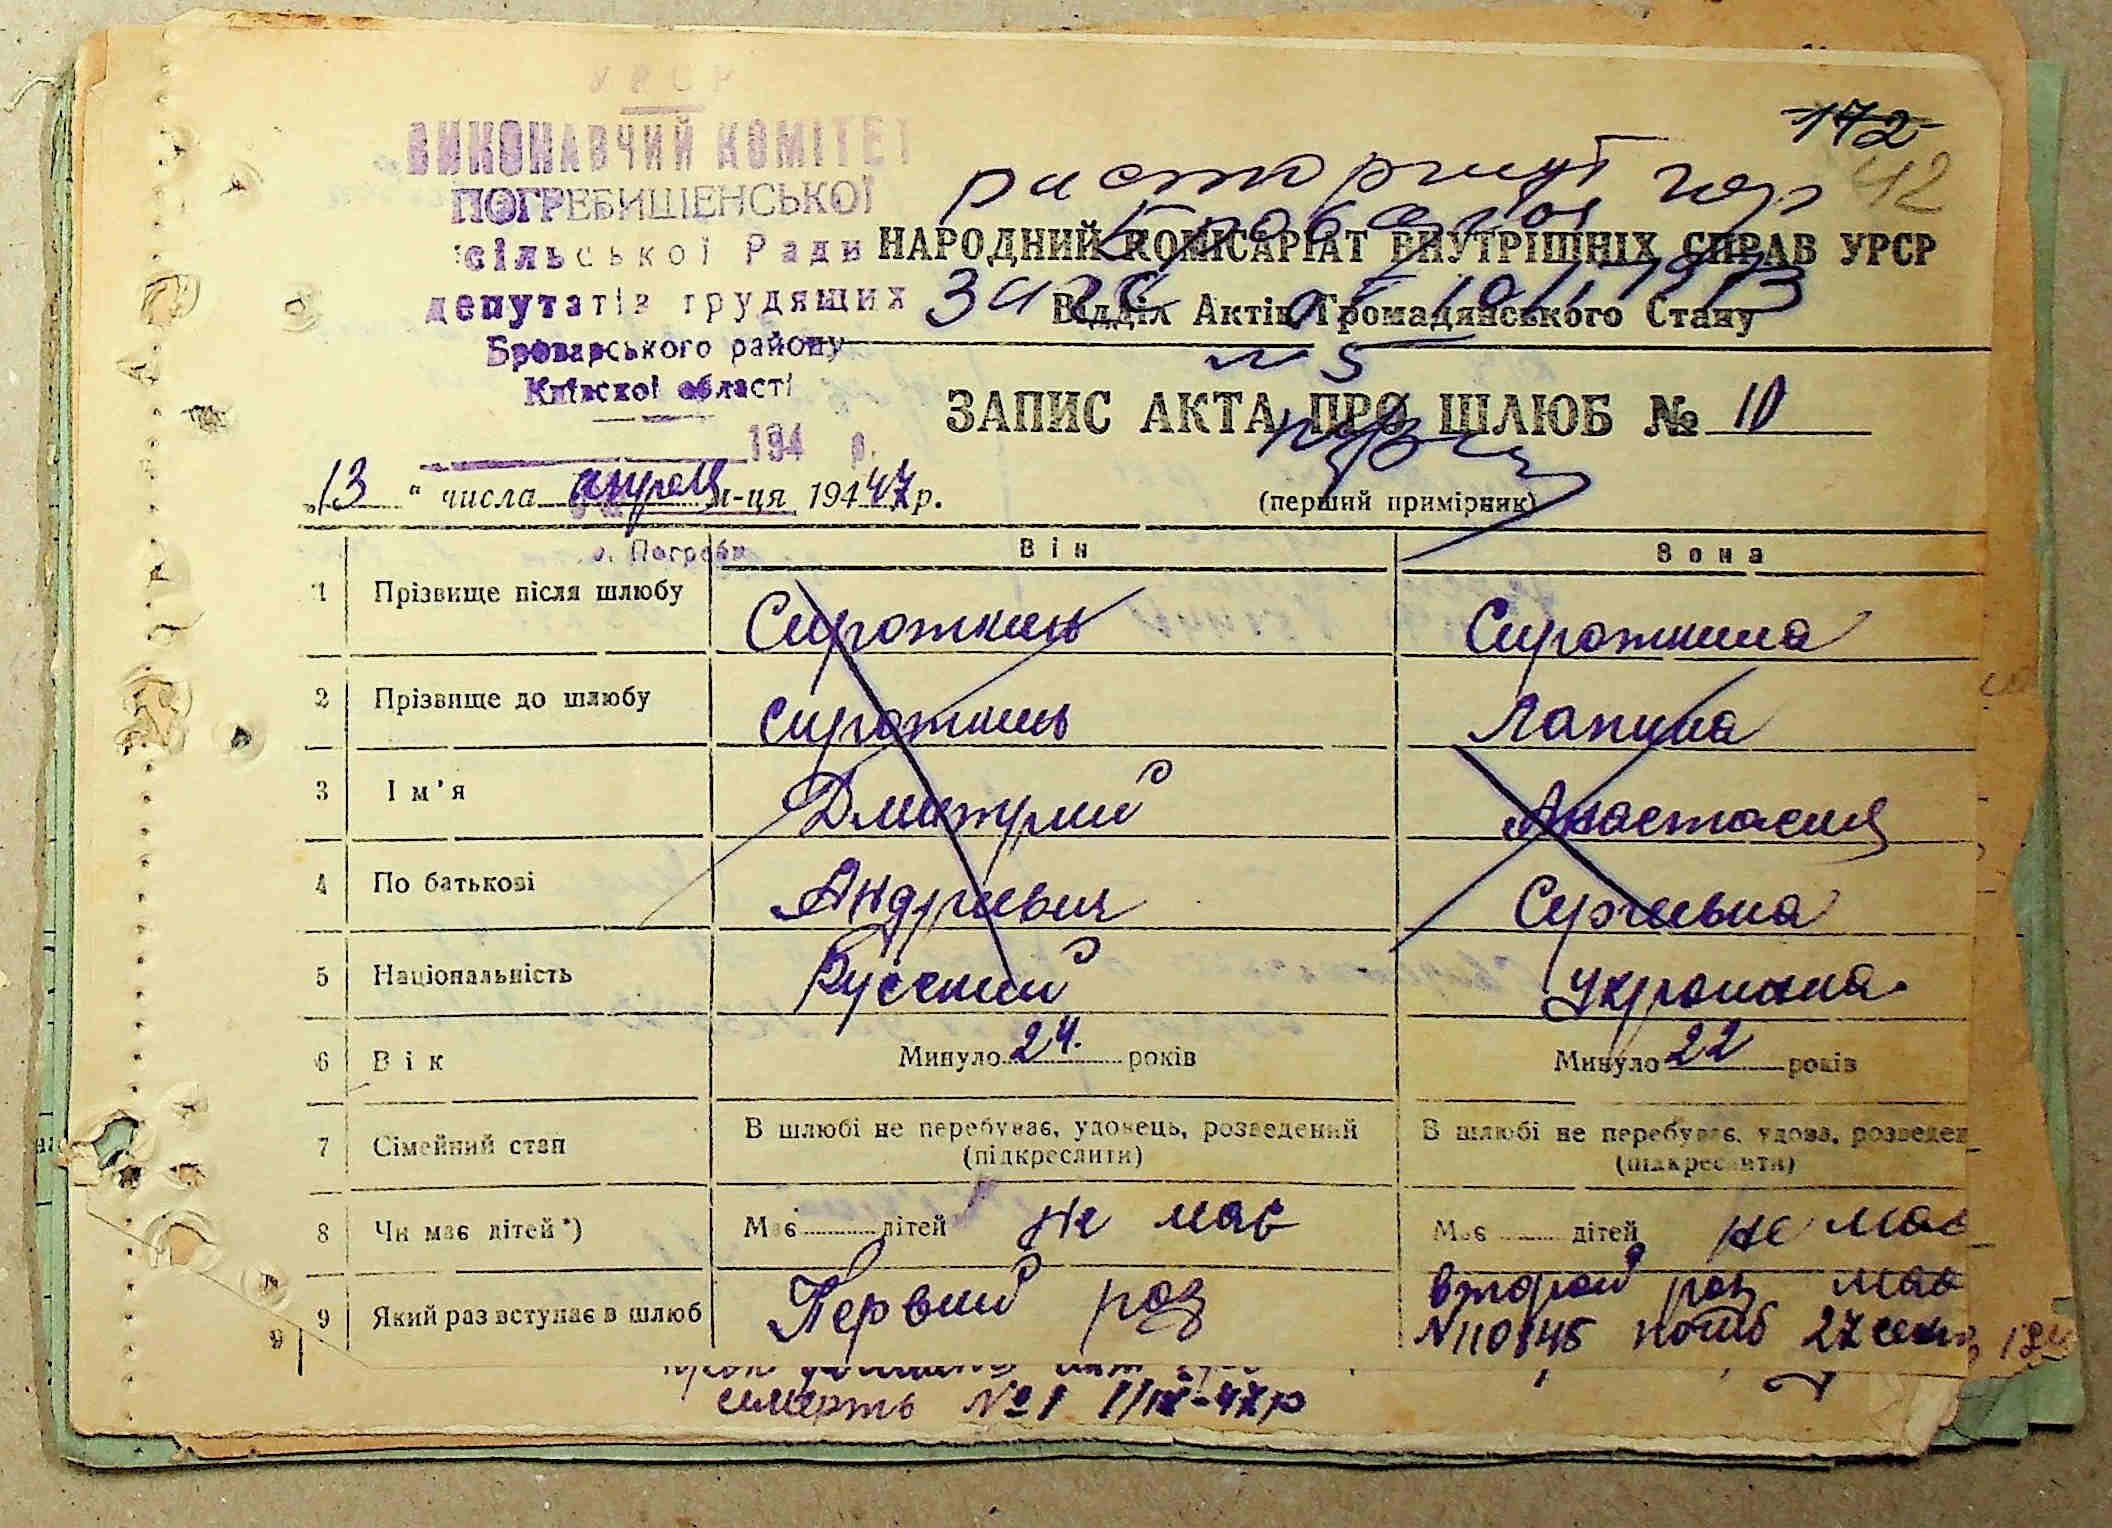 172
42
УРСР
ВИКОНАВЧИЙ КОМІТЕТ
ПОГРЕБИЩЕНСЬКОЇ
сільської Ради
депутатів трудящих
Броварського району
Київскої області
194 р.
расторгнут
НАРОДНИЙ КОМІСАРІАТ ВНУТРІШНІХ СПРАВ УРСР
Відділ Актів Громадянського Стану
загс от
№ 5
ЗАПИС АКТА ПРО ШЛЮБ № 10
(перший примірник)
„13 “ числа апреля м-ця 194 47 р.
с. Погреби
Він Вона
1 Прізвище після шлюбу Сироткинь Сироткина
2 Прізвище до шлюбу Сироткинь Лапина
3 Ім'я Дмитрий Анастасия
4 По батькові Андриевич Сергиевна
5 Національність Русский Украинка
6 Вік Минуло 24. років Минуло 22 років
7 Сімейний стан В шлюбі не перебуває, удовець, розведений В шлюбі не перебуває, удова, розведен
(підкреслити) (підкреслити)
8 Чи має дітей *) Має дітей не має Має дітей не має
9 Який раз вступає в шлюб Первий раз второй раз мае
погиб 27
9
смерть № 1